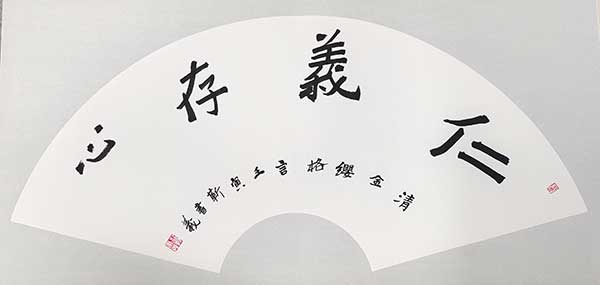 仁義存心
清金纓格言壬寅靳書義